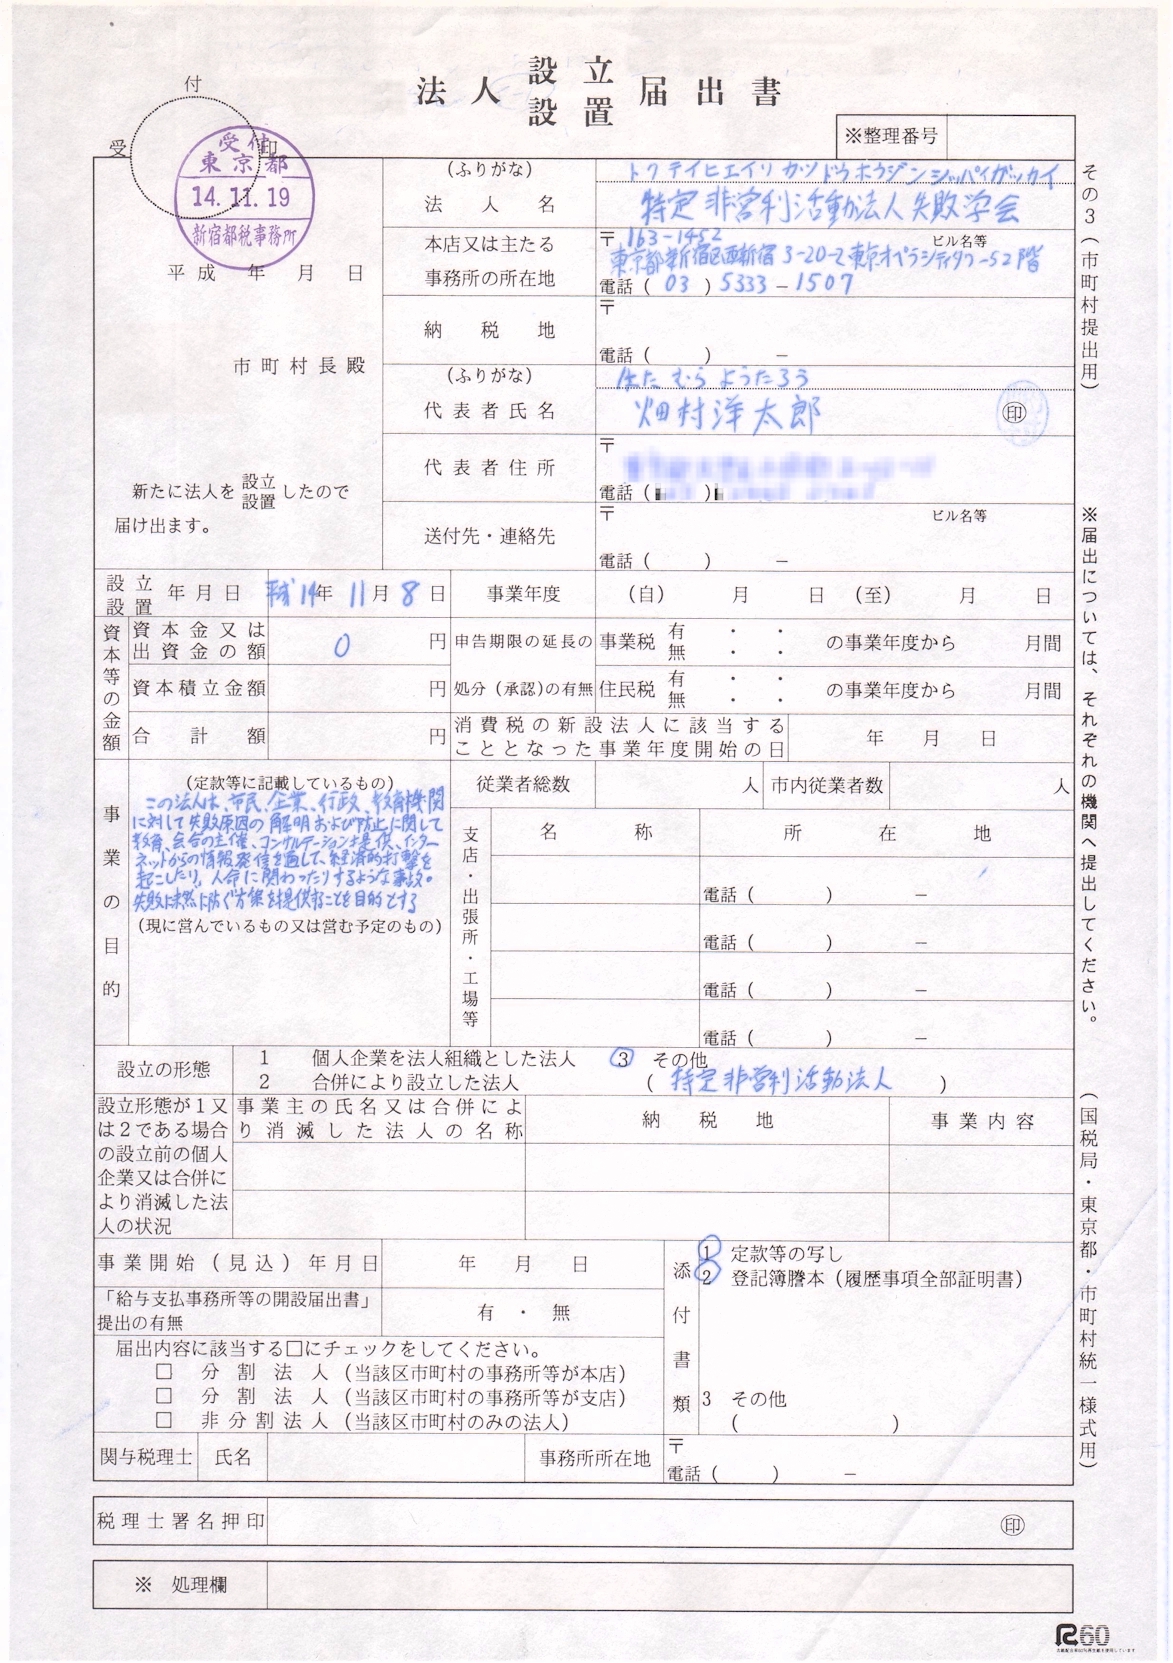 法人 設立 届出書
設置
付
受 印
受付
東京都
14.11.19
新宿都税事務所
※整理番号
平成 年 月 日
市町村長殿
新たに法人を 設立 したので
設置
届け出ます。
(ふりがな)
トクテイヒエイリ カツドウホウジン シッパイガッカイ
法人名
特定非営利活動法人失敗学会
本店又は主たる
事務所の所在地
〒163-1452 ビル名等
東京都新宿区西新宿3-20-2東京オペラシティタワー52階
電話(03)5333-1507
納税地
〒
電話( ) -
(ふりがな)
はたむらようたろう
代表者氏名
畑村洋太郎
印
代表者住所
〒
電話( )
送付先・連絡先
〒 ビル名等
電話( ) -
設立 年月日 平成14年11月8日
設置
事業年度 (自) 月 日 (至) 月 日
資本等の金額
資本金又は
出資金の額
0 円
資本積立金額 円
合計額 円
申告期限の延長の
処分(承認)の有無
事業税 有 ・ ・ の事業年度から 月間
無 ・ ・
住民税 有 ・ ・ の事業年度から 月間
無 ・ ・
消費税の新設法人に該当する
こととなった事業年度開始の日
年 月 日
事業の目的
(定款等に記載しているもの)
この法人は、市民、企業、行政、教育機関
に対して失敗原因の解明および防止に関して
教育、会合の主催、コンサルテーション提供、インター
ネットからの情報発信を通して、経済的打撃を
起こしたり、人命に関わったりするような事故・
失敗は未然に防ぐ方策を提供することを目的とする
(現に営んでいるもの又は営む予定のもの)
従業者総数 人 市内従業者数 人
支店・出張所・工場等
名称 所在地
電話( ) -
電話( ) -
電話( ) -
電話( ) -
設立の形態
1 個人企業を法人組織とした法人 3 その他
2 合併により設立した法人 (特定非営利活動法人)
設立形態が1又
は2である場合
の設立前の個人
企業又は合併に
より消滅した法
人の状況
事業主の氏名又は合併によ
り消滅した法人の名称
納税地
事業内容
事業開始(見込)年月日 年 月 日
「給与支払事務所等の開設届出書」
提出の有無
有・無
届出内容に該当する□にチェックをしてください。
□ 分割法人(当該区市町村の事務所等が本店)
□ 分割法人(当該区市町村の事務所等が支店)
□ 非分割法人(当該区市町村のみの法人)
添付書類
1 定款等の写し
2 登記簿謄本(履歴事項全部証明書)
3 その他
( )
関与税理士 氏名 事務所所在地
〒
電話( ) -
税理士署名押印 印
※ 処理欄
その3(市町村提出用)
※届出については、それぞれの機関へ提出してください。
(国税局・東京都・市町村統一様式用)
R60